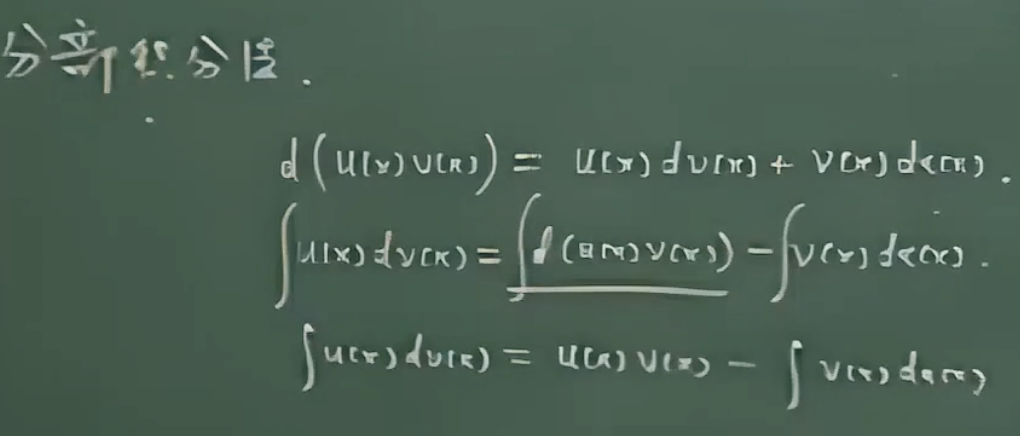 分部积分法.
d(u(x)v(x)) = u(x)dv(x) + v(x)du(x).
∫u(x)dv(x) = ∫d(u(x)v(x)) - ∫v(x)du(x).
∫u(x)dv(x) = u(x)v(x) - ∫v(x)du(x)